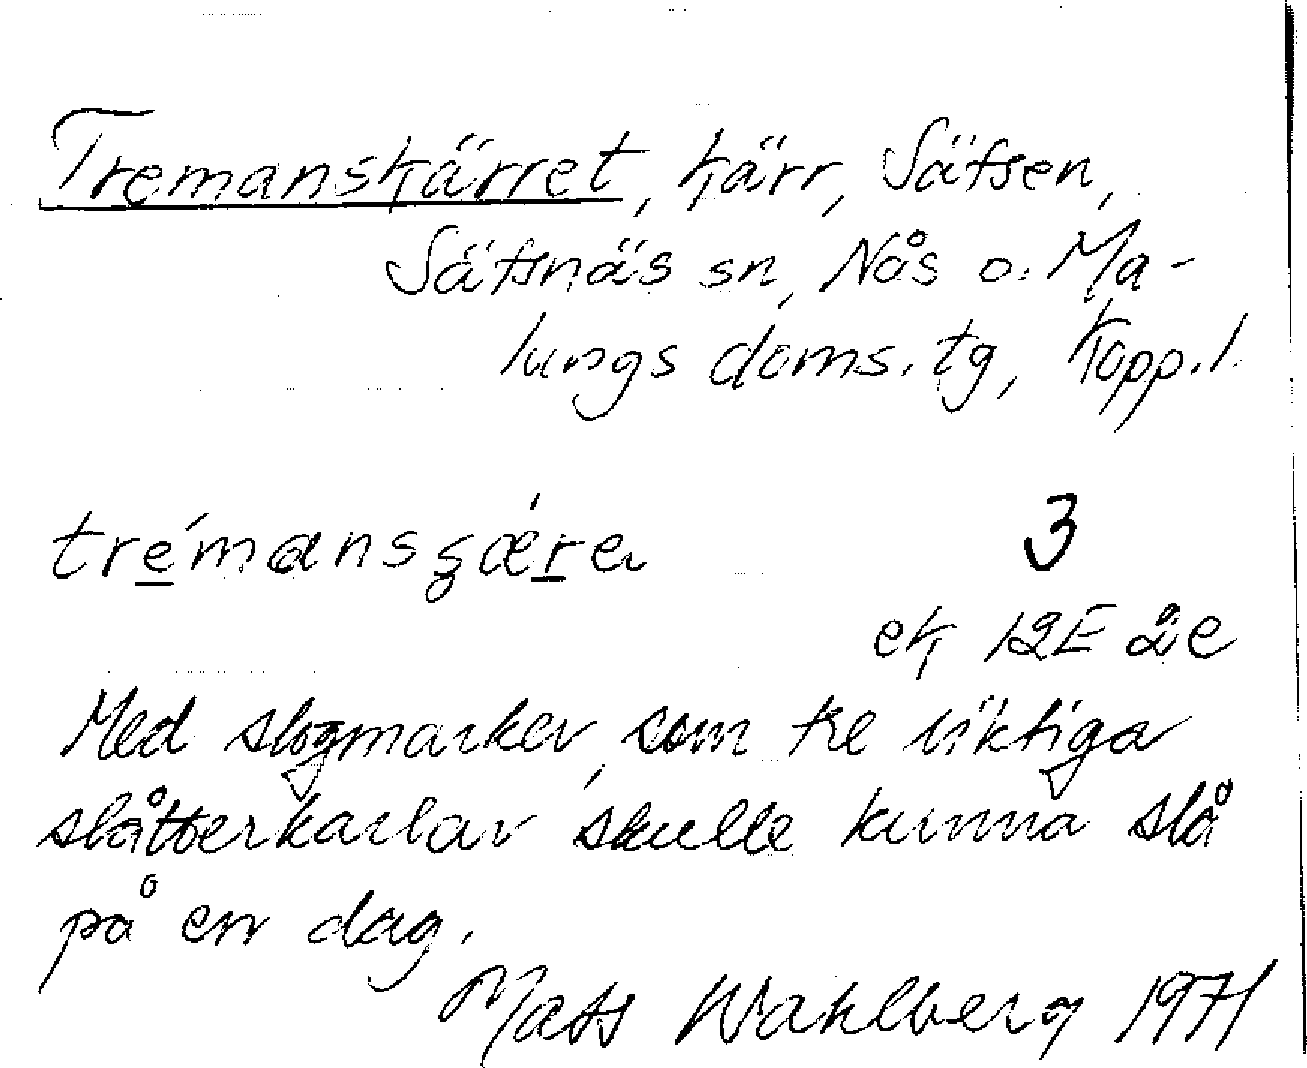 Tremanskärret, kärr, Säfsen,
Säfsnäs sn, Nås o. Ma-
lungs doms. tg, Kopp. l.
trémansɕǽre
3
ek 12E 2e
Med slogmarker, som tre riktiga
slåtterkarlar skulle kunna slå
på en dag.
Mats Wahlberg 1971